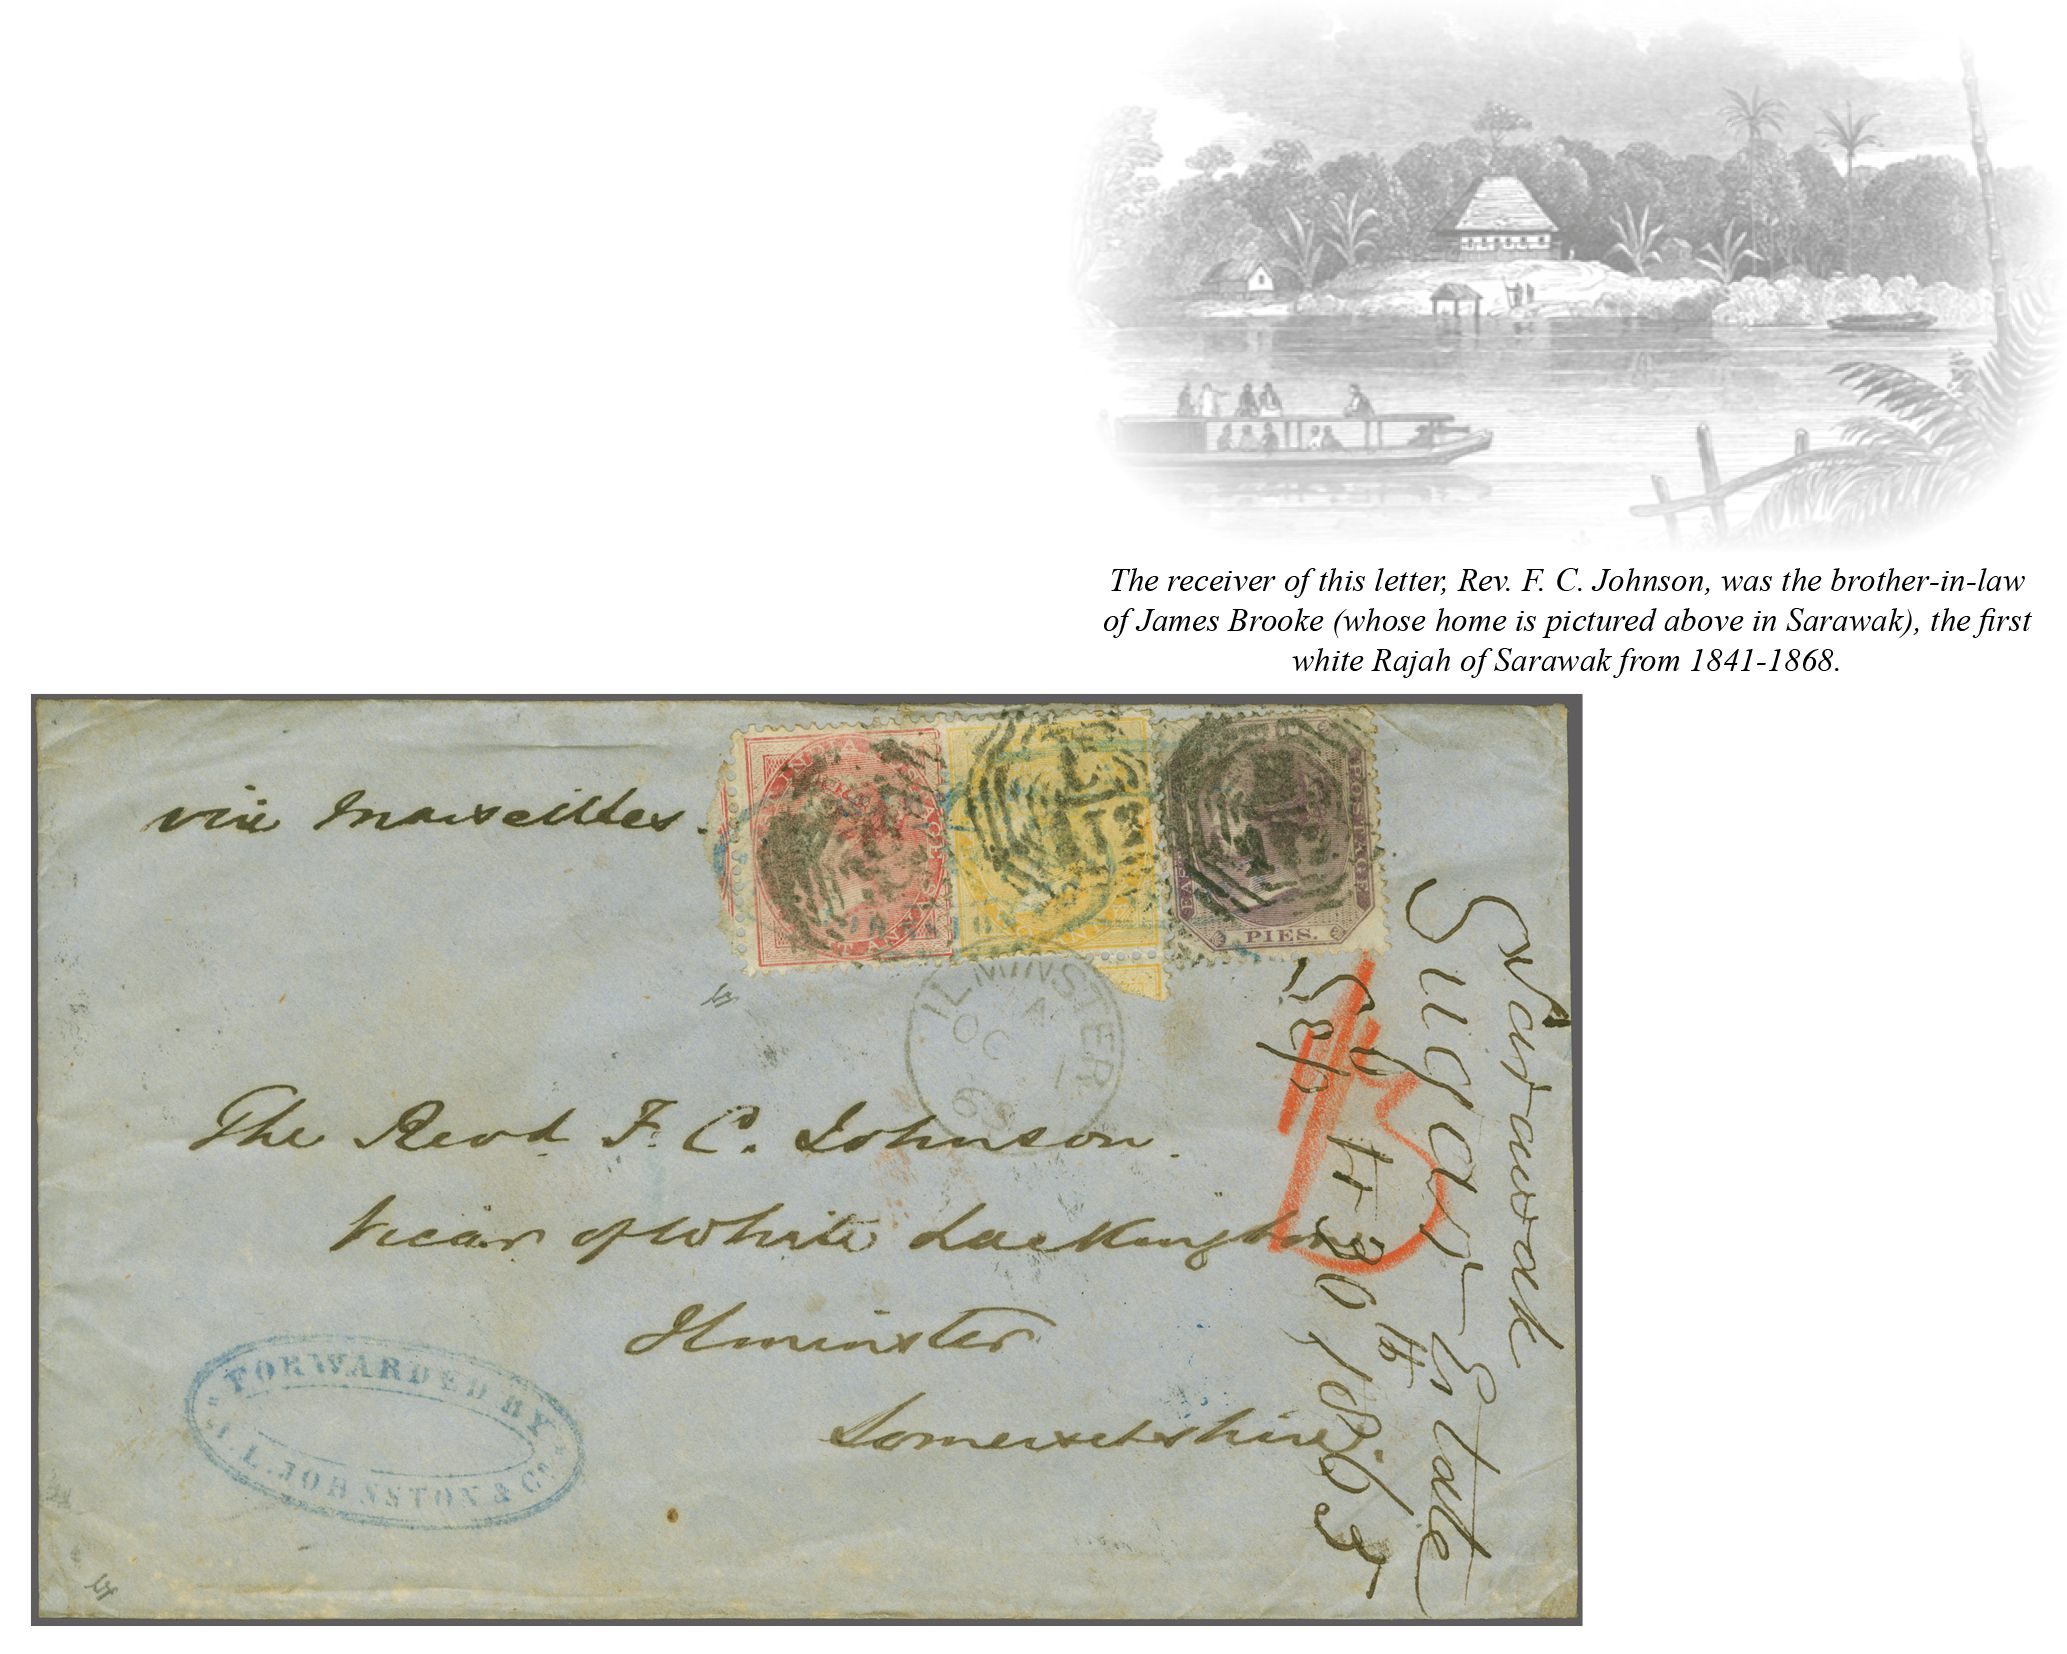 The receiver of this letter, Rev. F. C. Johnson, was the brother-in-law
of James Brooke (whose home is pictured above in Sarawak), the first
white Rajah of Sarawak from 1841-1868.
via Marseilles.
PIES.
POSTAGE
ILMINSTER
A
OC 1
63
The Revd. F. C. Johnson.
Vicar of White Lackington
Ilminster
Somersetshire.
FORWARDED BY
J. L. JOHNSTON & Co.
Sarawak
Sugar Estate
1863